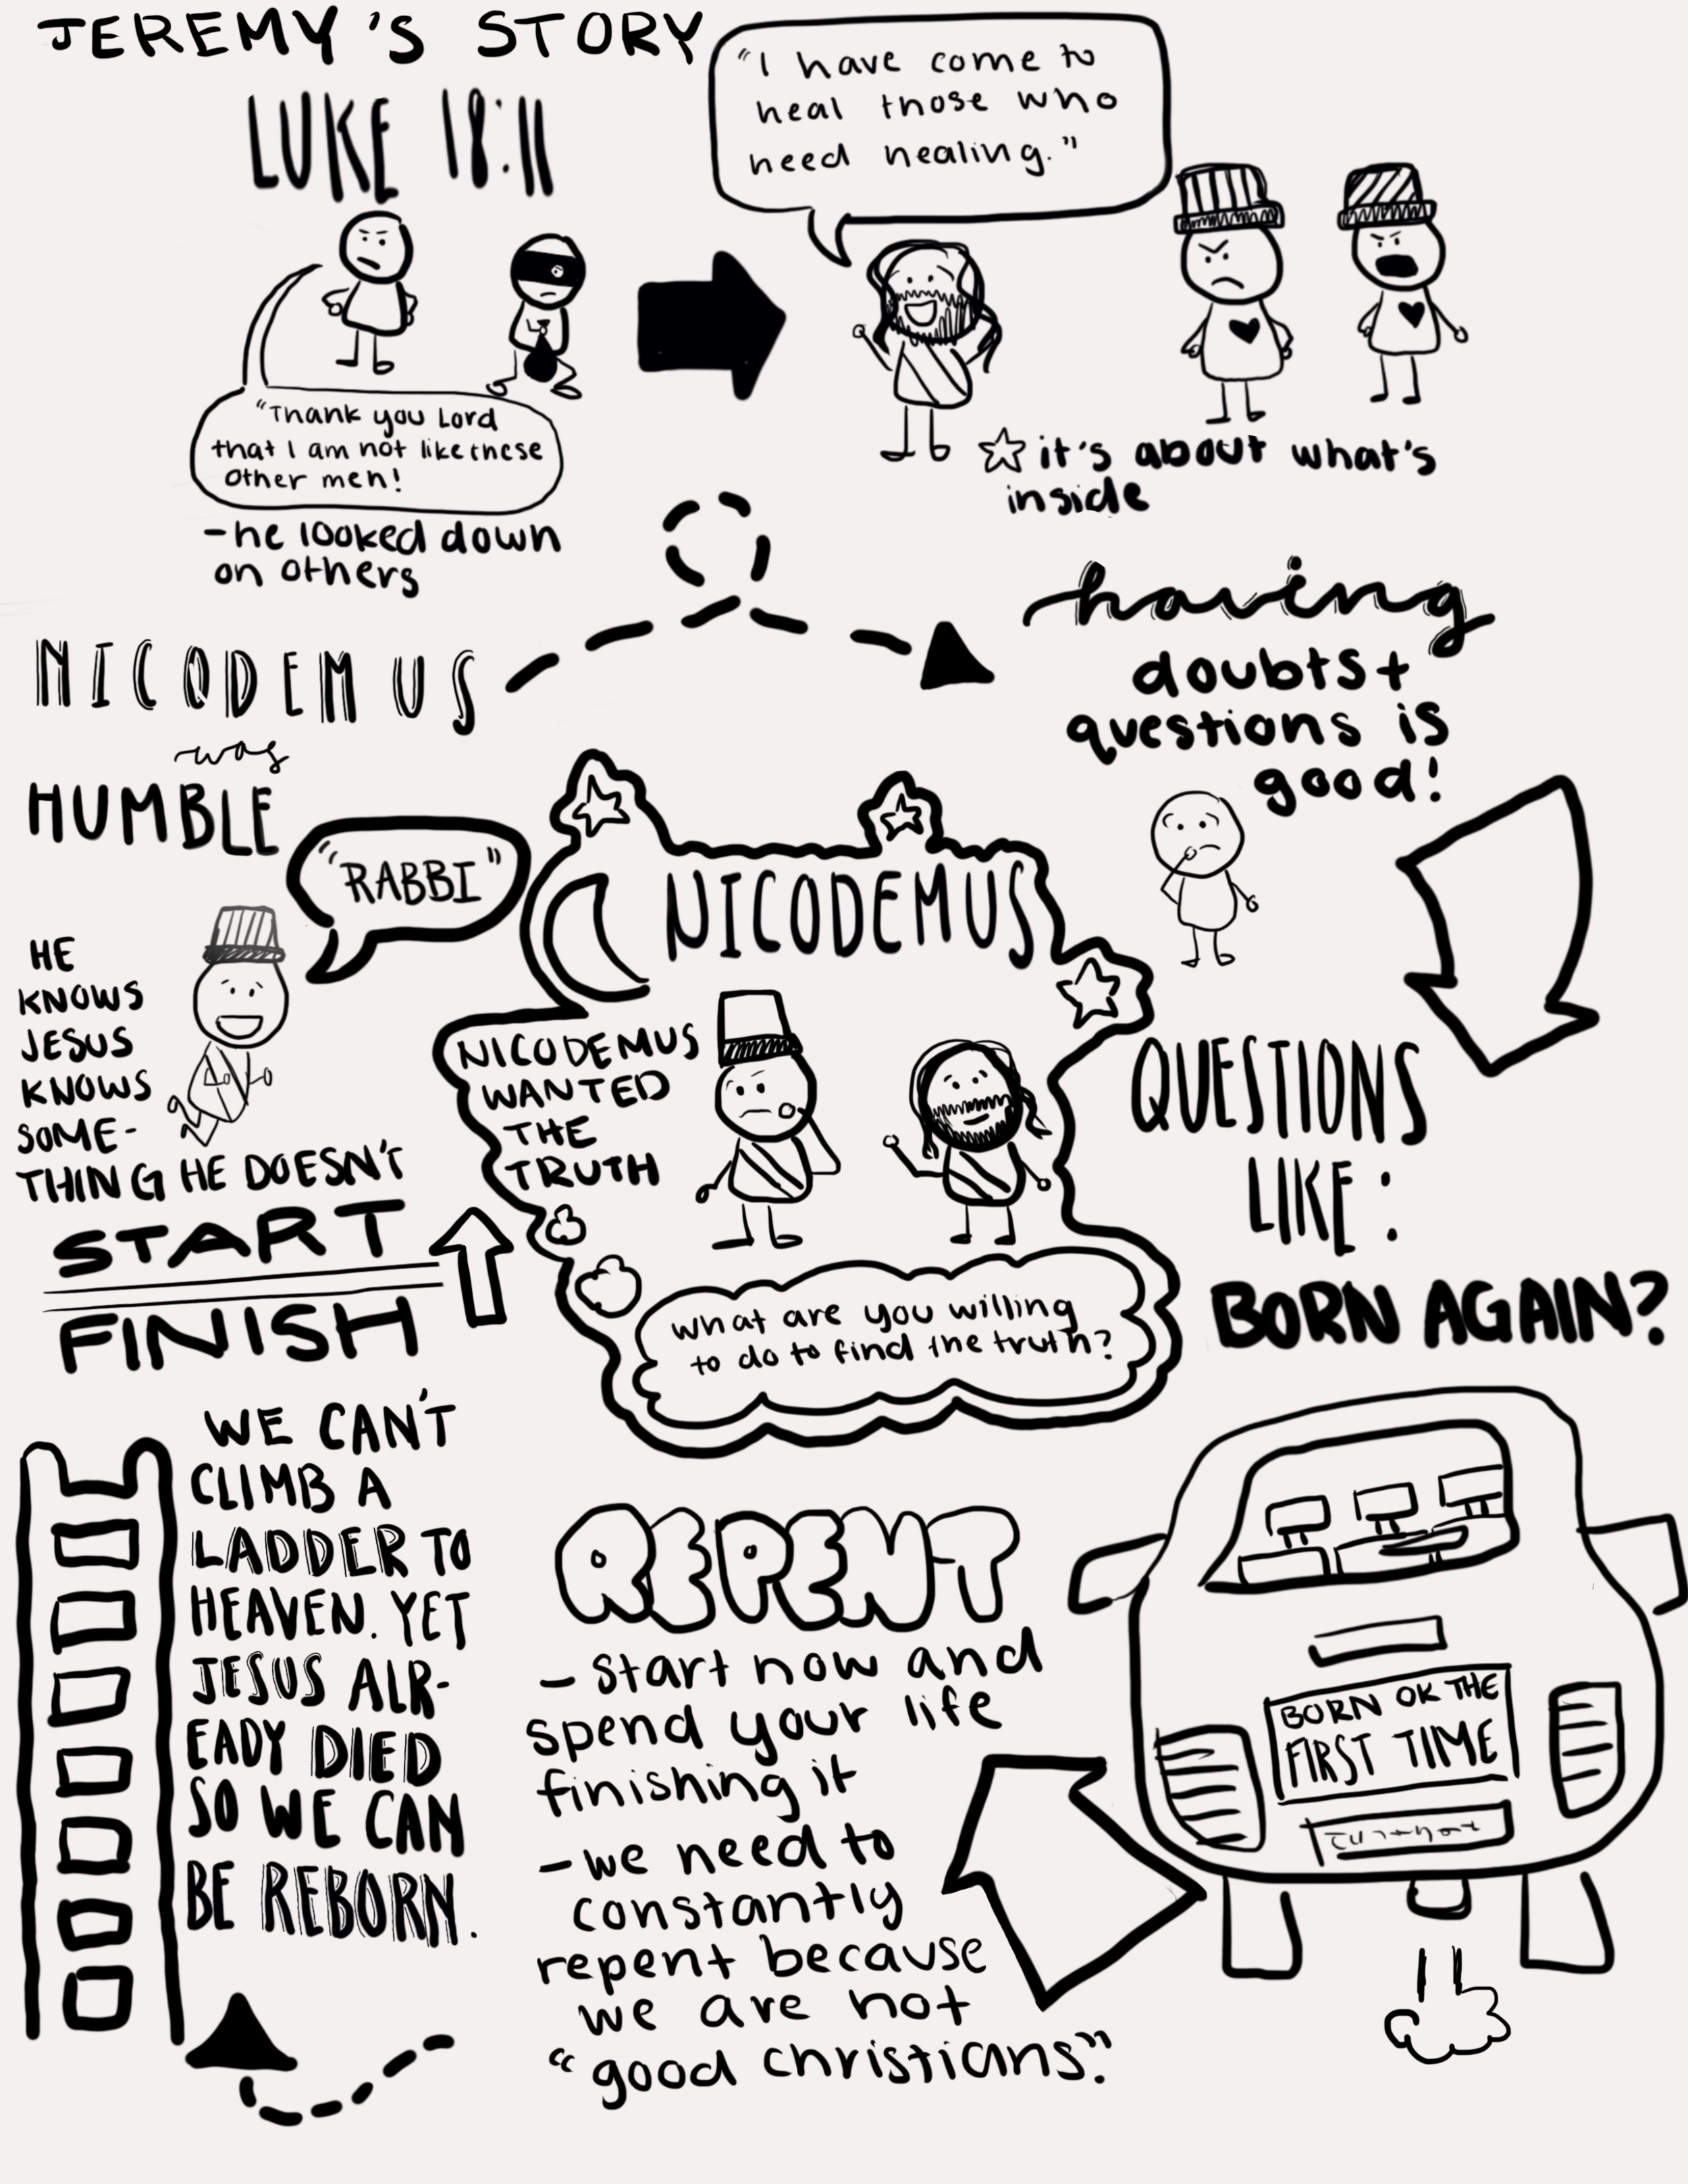 JEREMY'S STORY
LUKE 18:11
"I have come to
heal those who
need healing."
"Thank you Lord
that I am not like these
other men!
- he looked down
on others
☆ it's about what's
inside
NICODEMUS
was
HUMBLE
having
doubts +
questions is
good!
"RABBI"
HE
KNOWS
JESUS
KNOWS
SOME-
THING HE DOESN'T
NICODEMUS
NICODEMUS
WANTED
THE
TRUTH
what are you willing
to do to find the truth?
QUESTIONS
LIKE:
BORN AGAIN?
START
FINISH
WE CAN'T
CLIMB A
LADDER TO
HEAVEN. YET
JESUS ALR-
EADY DIED
SO WE CAN
BE REBORN.
REPENT
- start now and
spend your life
finishing it
- we need to
constantly
repent because
we are not
"good christians".
BORN OK THE
FIRST TIME